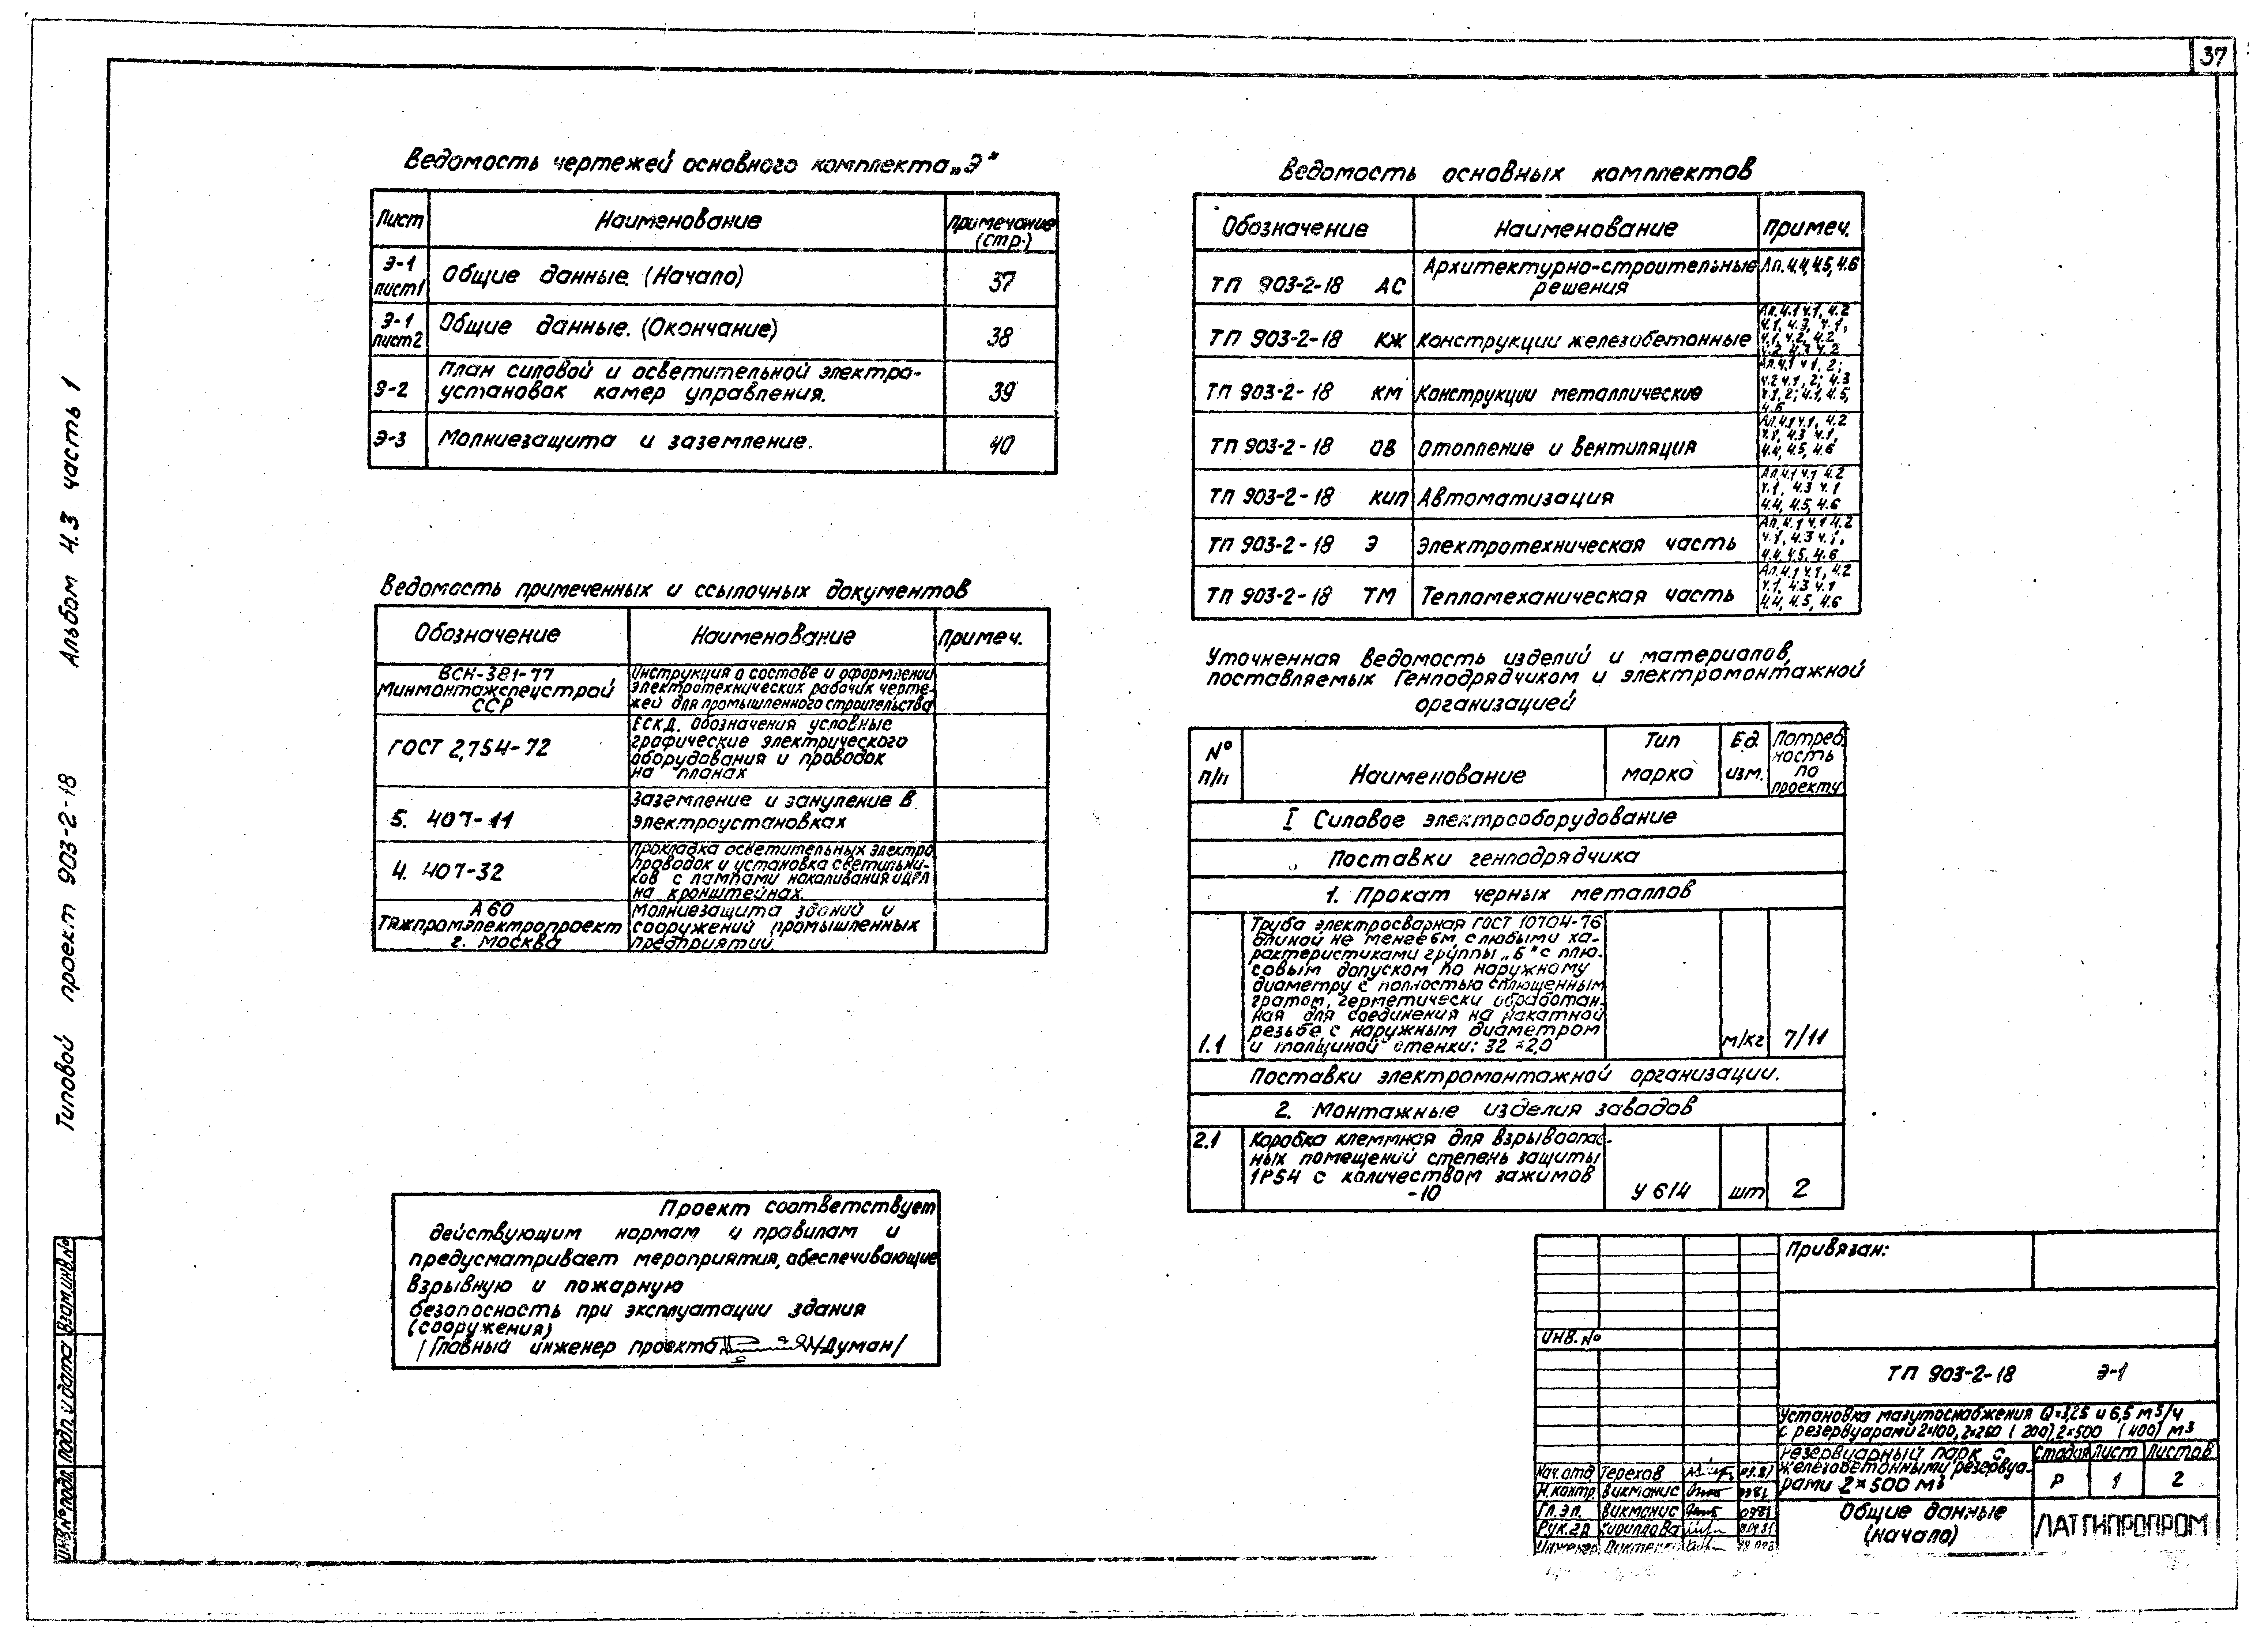 37
Типовой проект 903-2-18 Альбом 4.3 часть 1
Ведомость чертежей основного комплекта „Э“
Лист Наименование Примечание (стр.)
Э-1 лист1 Общие данные. (Начало) 37
Э-1 лист2 Общие данные. (Окончание) 38
План силовой и осветительной электро-
Э-2 установок камер управления. 39
Э-3 Молниезащита и заземление. 40
Ведомость примеченных и ссылочных документов
Обозначение Наименование Примеч.
ВСН-381-77
Минмонтажспецстрой
ССР
Инструкция о составе и оформлении
электротехнических рабочих черте-
жей для промышленного строительства
ГОСТ 2.754-72
ЕСКД. Обозначения условные
графические электрического
оборудования и проводок
на планах
5. 407-11
Заземление и зануление в
электроустановках
4. 407-32
Прокладка осветительных электро
проводок и установка светильни-
ков с лампами накаливания и ДРЛ
на кронштейнах.
А60
Тяжпромэлектропроект
г. Москва
Молниезащита зданий и
сооружений промышленных
предприятий
Проект соответствует
действующим нормам и правилам и
предусматривает мероприятия, обеспечивающие
взрывную и пожарную
безопасность при эксплуатации здания
(сооружения)
/Главный инженер проекта Думан/
Ведомость основных комплектов
Обозначение Наименование Примеч.
ТП 903-2-18 АС Архитектурно-строительные решения Ал. 4.4, 4.5, 4.6
ТП 903-2-18 КЖ Конструкции железобетонные
Ал. 4.1 ч.1, 4.2
ч.1, 4.3, ч.1,
ТП 903-2-18 КМ Конструкции металлические
Ал. 4.1 ч1, 2;
4.2 ч.1, 2; 4.3
4.6
ТП 903-2-18 ОВ Отопление и вентиляция
Ал. 4.1 ч.1, 4.2
ч.1, 4.3 ч.1,
4.4, 4.5, 4.6
ТП 903-2-18 КИП Автоматизация
Ал. 4.1 ч.1 4.2
ч.1, 4.3 ч.1
4.4, 4.5, 4.6
ТП 903-2-18 Э Электротехническая часть
Ал. 4.1 ч.1 4.2
ч.1, 4.3 ч.1,
4.4 4.5, 4.6
ТП 903-2-18 ТМ Тепломеханическая часть
Ал. 4.1 ч.1, 4.2
ч.1, 4.3 ч.1
4.4, 4.5, 4.6
Уточненная ведомость изделий и материалов,
поставляемых Генподрядчиком и электромонтажной
организацией
№ п/п Наименование Тип марка Ед. изм. Потреб. ность по проекту
I Силовое электрооборудование
Поставки генподрядчика
1. Прокат черных металлов
Труба электросварная ГОСТ 10704-76
длиной не менее 6м, с любыми ха-
рактеристиками группы „Б“ с плю-
совым допуском по наружному
диаметру с полностью сплющенным
гратом, герметически обработан-
ная для соединения на накатной
резьбе с наружным диаметром
1.1 и толщиной стенки: 32×2,0 м/кг 7/11
Поставки электромонтажной организации.
2. Монтажные изделия заводов
2.1 Коробка клеммная для взрывоопас-
ных помещений степень защиты
1Р54 с количеством зажимов
-10 У 614 шт 2
Привязан:
ИНВ. №
ТП 903-2-18 Э-1
Установка мазутоснабжения Q=3,25 и 6,5 м3/ч
с резервуарами 2×100, 2×250 (200), 2×500 (400) м3
Резервуарный парк с
железобетонными резервуа-
рами 2×500 м3
Стадия Лист Листов
Р 1 2
Общие данные
(начало)
ЛАТГИПРОПРОМ
Нач. отд Терехов
Н.контр. Викманис 0981
Гл. эл. Викманис 0981
Рук. гр Кириллова
Инженер
Инв. № подл. Подп. и дата Взам. инв. №